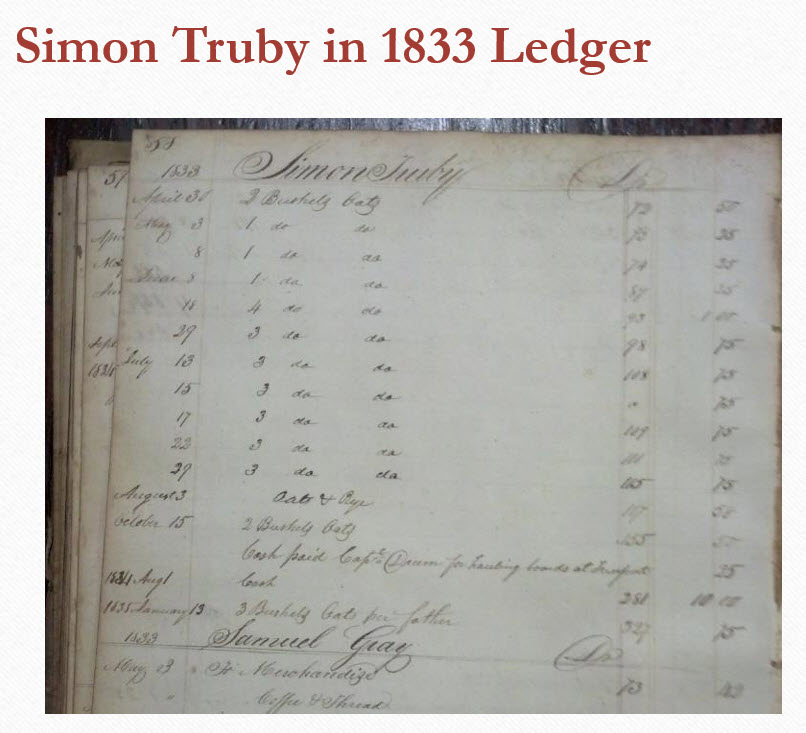 Simon Truby in 1833 Ledger
58
57 1833 Simon Truby Dr
April 30 2 Bushels Oats 73 50
May 3 1 do do 73 25
8 1 do da 74 25
June 8 1 da da 87 25
18 4 do do 93 1 00
29 3 do da 98 75
July 13 3 da da 108 75
15 3 da da " 75
17 3 da da 109 75
22 3 da da 75
27 3 do da 115 75
August 3 Oats & Rye 117 50
October 15 2 Bushels Oats 155
Cash paid Capt. for hauling boards at Freeport 25
1834 Aug 1 Cash 281 10 00
1835 January 13 3 Bushels Oats per father 327 75
1833 Samuel Gray Dr
May 3 To Merchandize 73
" Coffee & Thread
Sept
1834